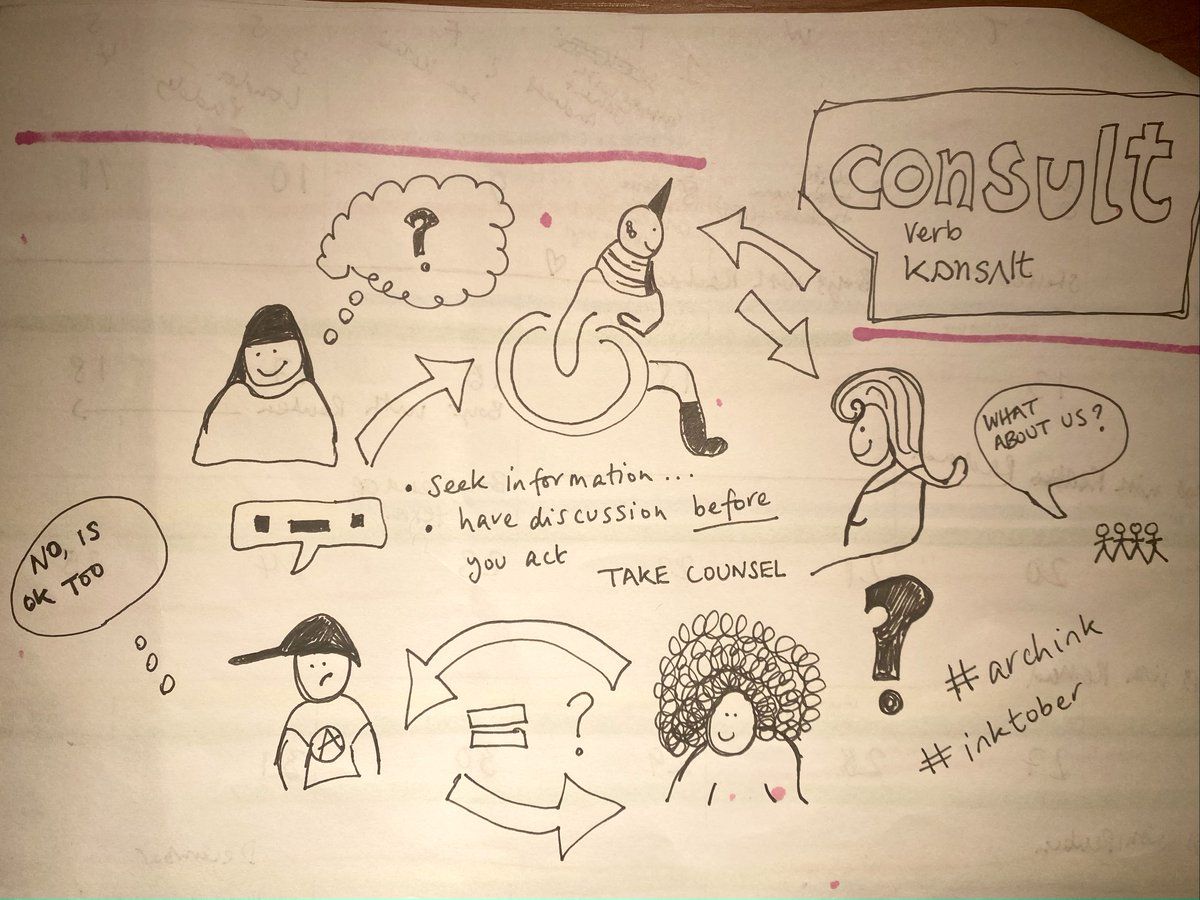 consult
verb
kɒnsʌlt
?
WHAT
ABOUT US?
• seek information...
• have discussion before
you act
TAKE COUNSEL
NO, IS
OK TOO
?
A
= ?
#archink
#inktober
10
11
18
20